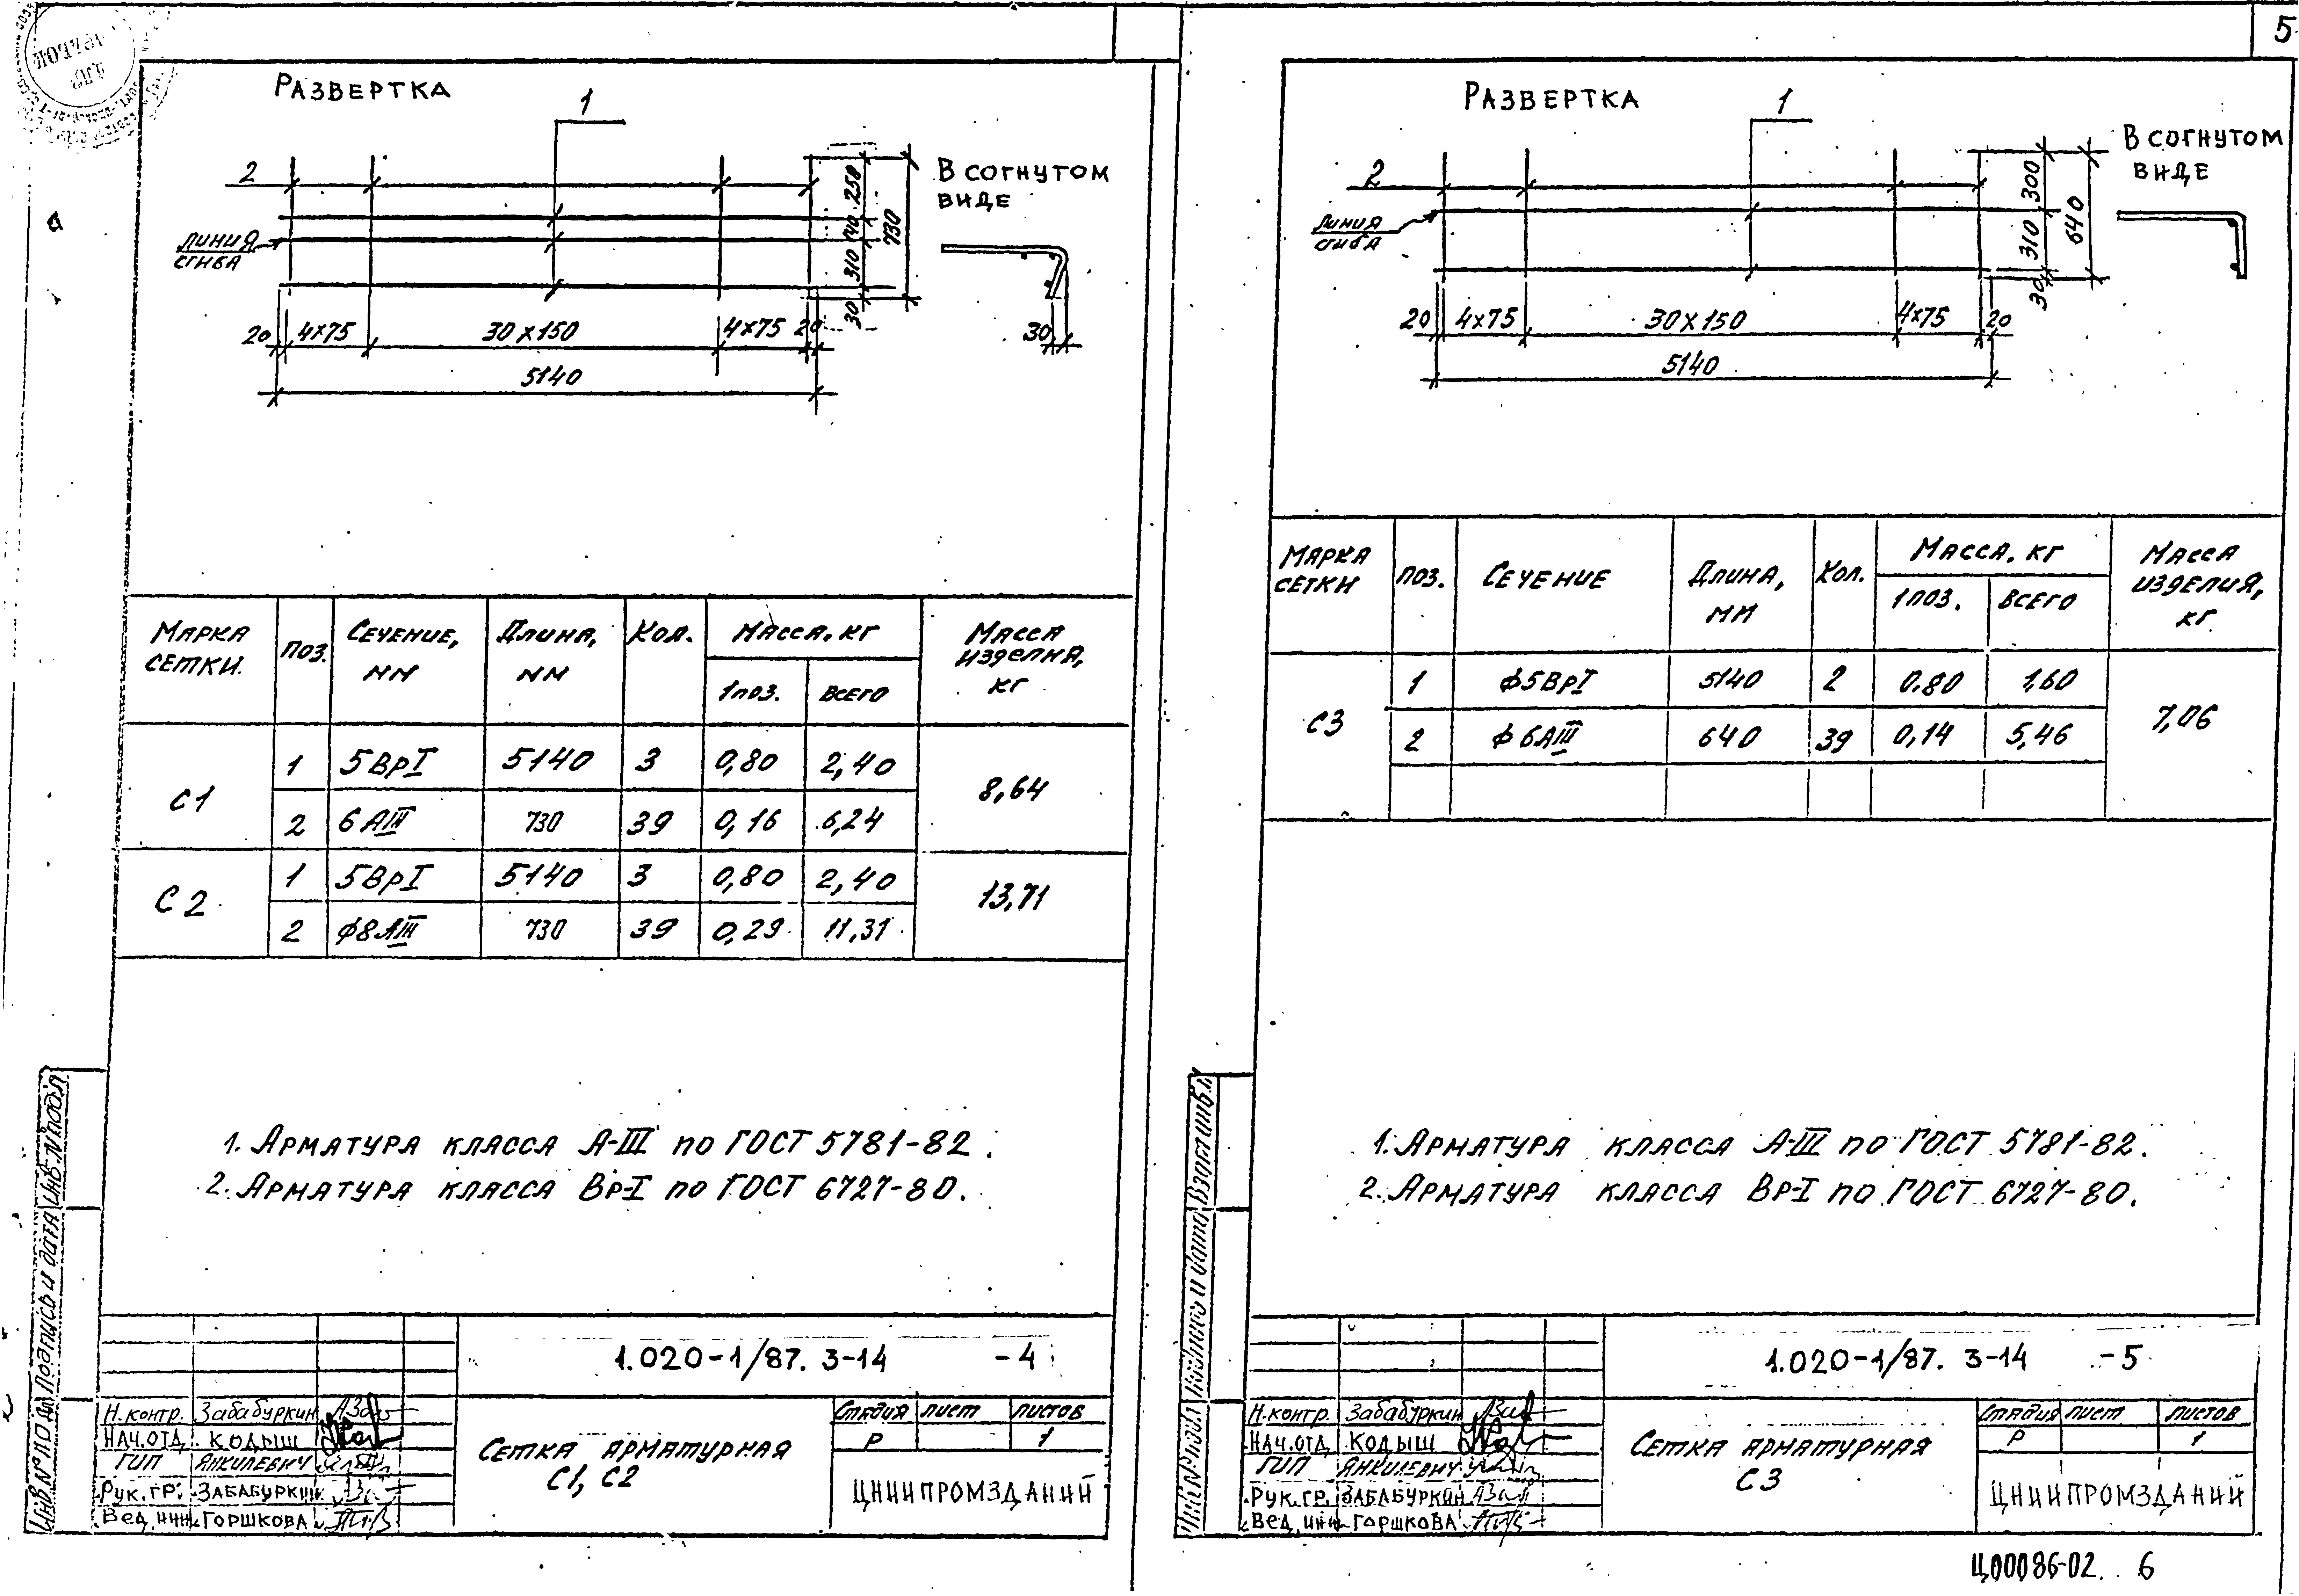 5
РАЗВЕРТКА
1
2
ЛИНИЯ
СГИБА
В СОГНУТОМ
ВИДЕ
250
140
310
30
730
20 4×75 30×150 4×75 20
5140
30
МАРКА СЕТКИ ПОЗ. СЕЧЕНИЕ, ММ ДЛИНА, ММ КОЛ. МАССА, КГ МАССА ИЗДЕЛИЯ, КГ
1 ПОЗ. ВСЕГО
С1 1 5ВрI 5140 3 0,80 2,40 8,64
2 6АIII 730 39 0,16 6,24
С2 1 5ВрI 5140 3 0,80 2,40 13,71
2 ϕ8АIII 730 39 0,29 11,31
1. АРМАТУРА КЛАССА А-III ПО ГОСТ 5781-82.
2. АРМАТУРА КЛАССА Вр-I ПО ГОСТ 6727-80.
1.020-1/87. 3-14 -4
Н.контр. Забабуркин
НАЧ.ОТД КОДЫШ
ГИП ЯНКИЛЕВИЧ
Рук.гр. ЗАБАБУРКИН
Вед.инж. ГОРШКОВА
СЕТКА АРМАТУРНАЯ
С1, С2
Стадия лист листов
Р 1
ЦНИИПРОМЗДАНИЙ
Инв.№подл Подпись и дата Инв.№подл
РАЗВЕРТКА
1
2
ЛИНИЯ
СГИБА
В СОГНУТОМ
ВИДЕ
300
310
30
640
20 4×75 30×150 4×75 20
5140
МАРКА СЕТКИ ПОЗ. СЕЧЕНИЕ ДЛИНА, ММ КОЛ. МАССА, КГ МАССА ИЗДЕЛИЯ, КГ
1 ПОЗ. ВСЕГО
С3 1 ϕ5ВрI 5140 2 0,80 1,60 7,06
2 ϕ6АIII 640 39 0,14 5,46
1. АРМАТУРА КЛАССА А-III ПО ГОСТ 5781-82.
2. АРМАТУРА КЛАССА Вр-I ПО ГОСТ 6727-80.
1.020-1/87. 3-14 -5
Н.контр. Забабуркин
НАЧ.ОТД КОДЫШ
ГИП ЯНКИЛЕВИЧ
Рук.гр. ЗАБАБУРКИН
Вед.инж. ГОРШКОВА
СЕТКА АРМАТУРНАЯ
С3
Стадия лист листов
Р 1
ЦНИИПРОМЗДАНИЙ
Ц00086-02 6